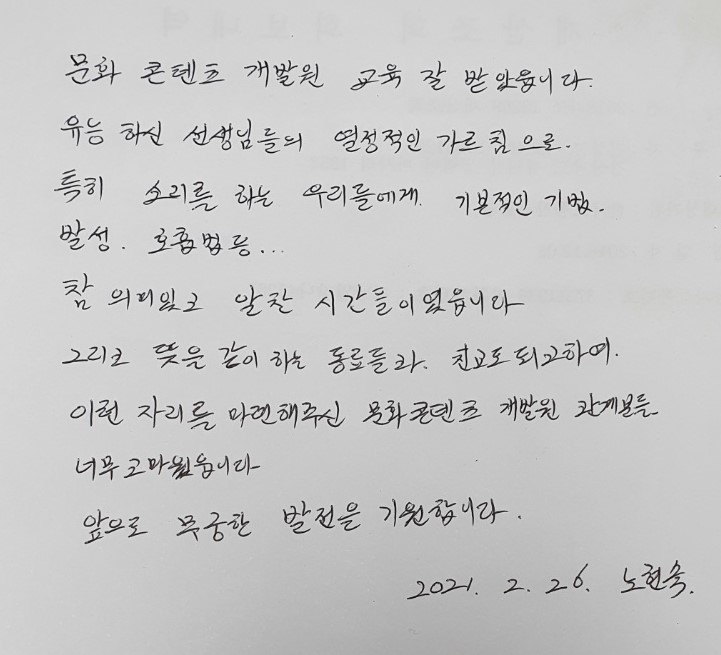 문화 콘텐츠 개발원 교육 잘 받았읍니다.
유능 하신 선생님들의 열정적인 가르침으로.
특히 소리를 하는 우리들에게. 기본적인 기법.
발성. 호흡법등...
참 의미있고 알찬 시간들이였읍니다
그리고 뜻을 같이 하는 동료들과. 친교도되고하여.
이런 자리를 마련해주신 문화콘텐츠 개발원 관계분들.
너무고마웠읍니다
앞으로 무궁한 발전을 기원합니다.
2021. 2. 26. 노현숙.